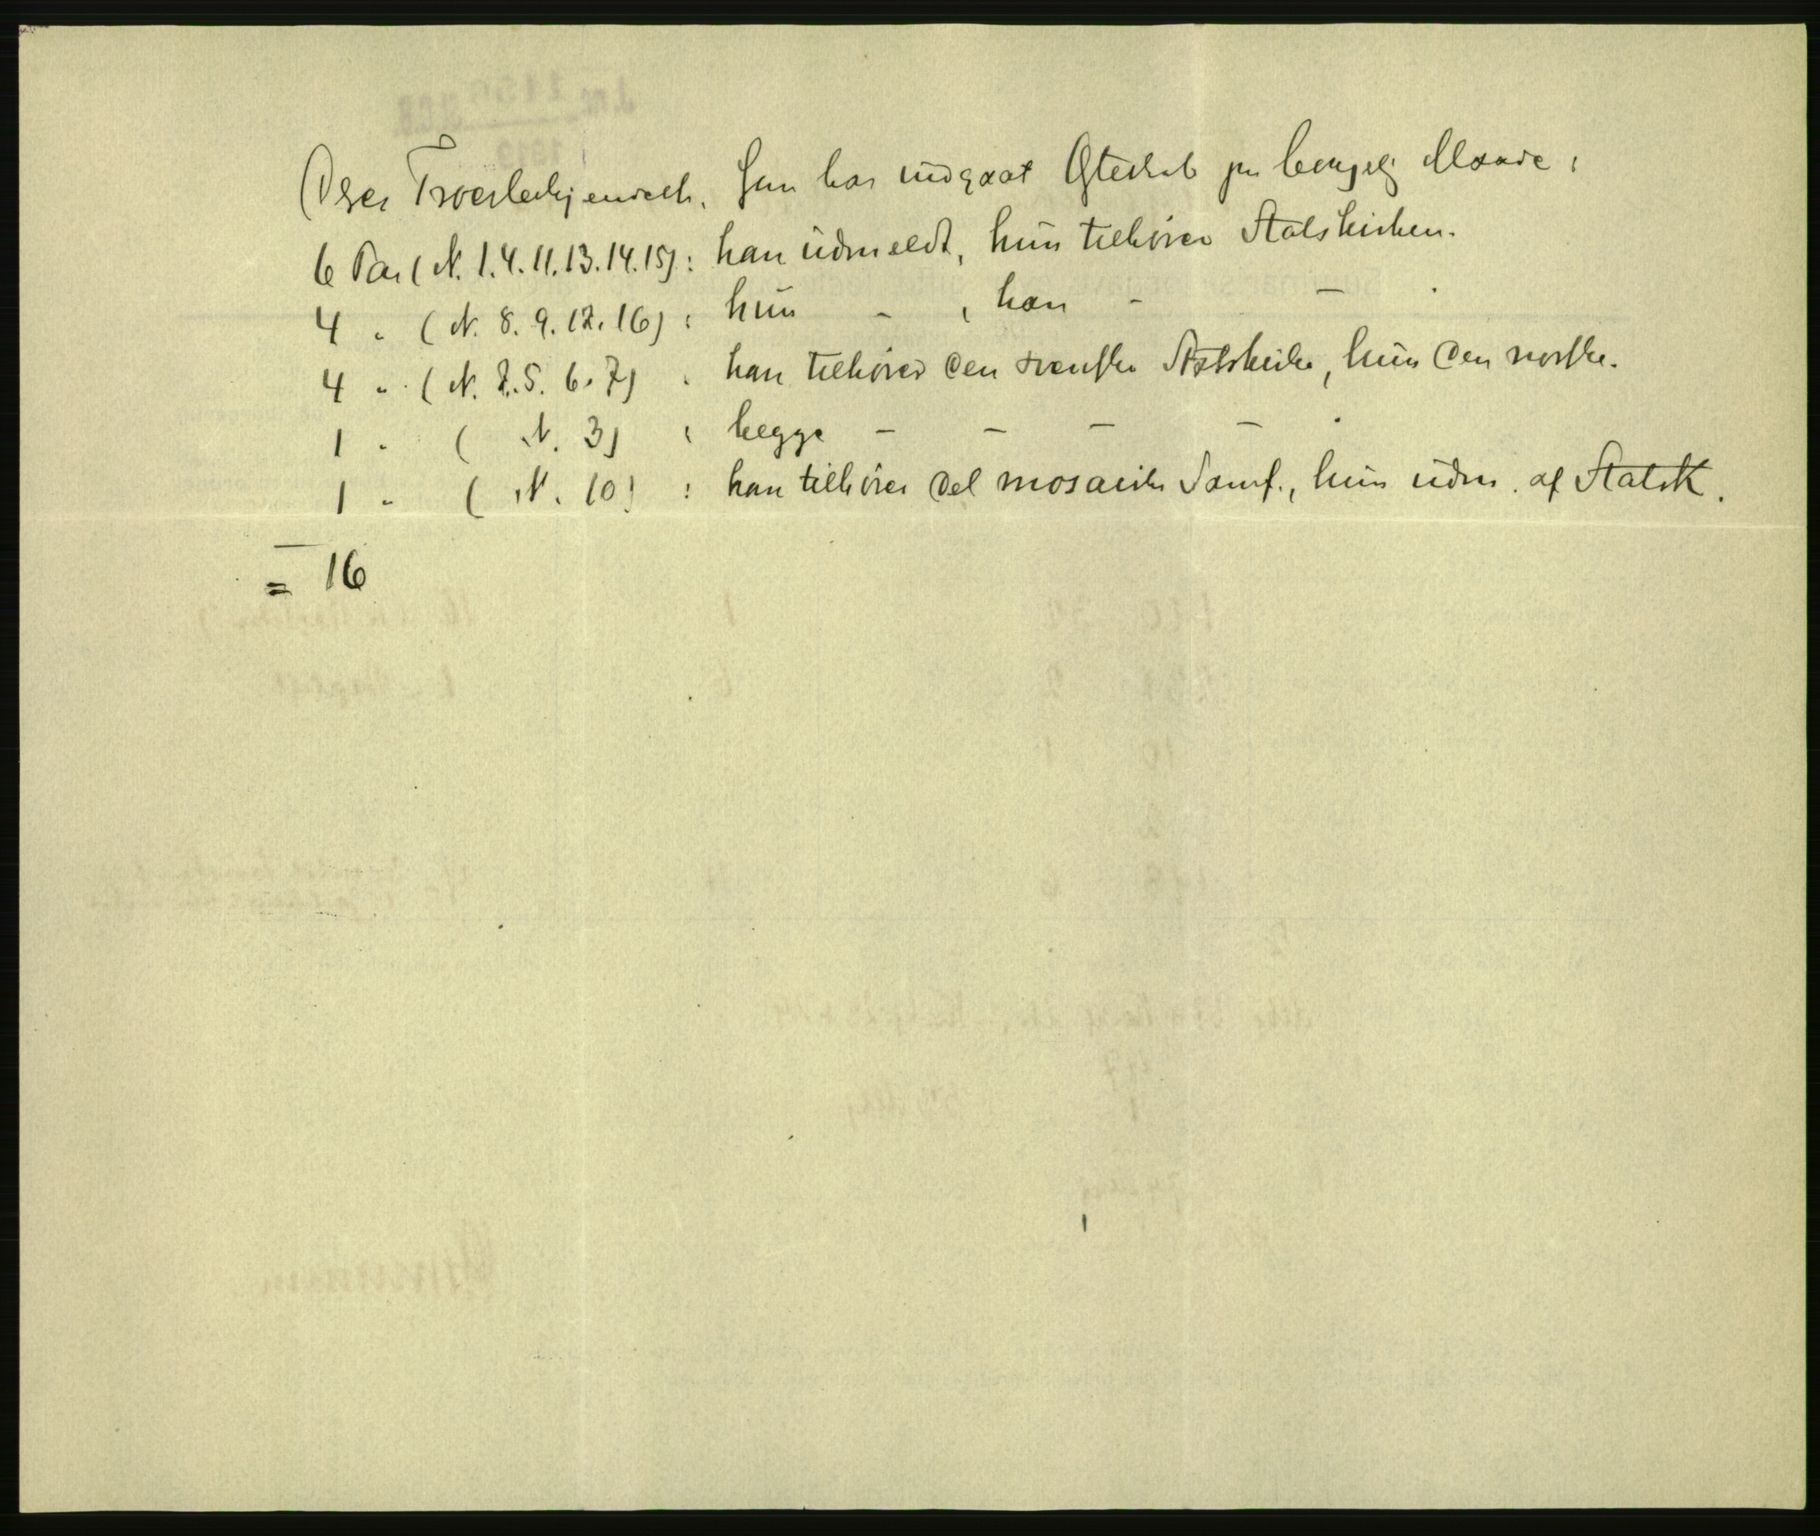 Deres Troesbekjendels. som har indgaat Ægteskab paa borgerlig Maade:
6 Par (N. 1. 4. 11. 13. 14. 15): han udmeldt, hun tilhører Statskirken.
4 " (N. 8. 9. 12. 16) : hun - , han - - .
4 " (N. 2. 5. 6. 7) : han tilhører den svenske Statskirke, hun den norske.
1 " ( N. 3) : begge - - - - .
1 " ( N. 10) : han tilhører det mosaiske Samf., hun udm. af StatsK.
= 16